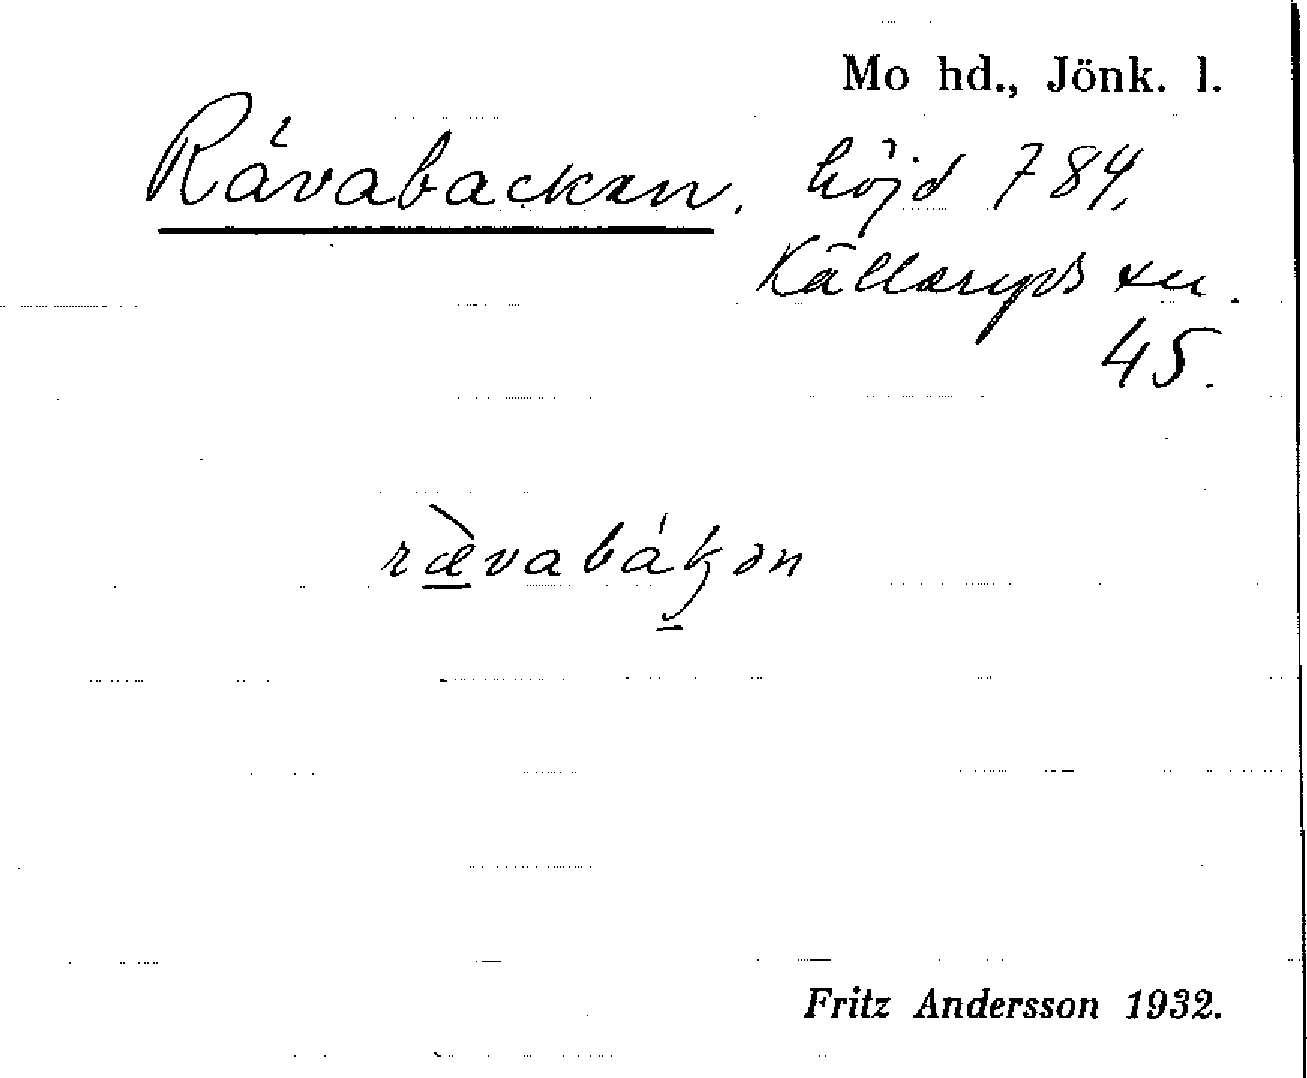 Mo hd., Jönk. l.
Rävabacken. höjd 784,
Källeryds sn.
45.
rævabákən
Fritz Andersson 1932.